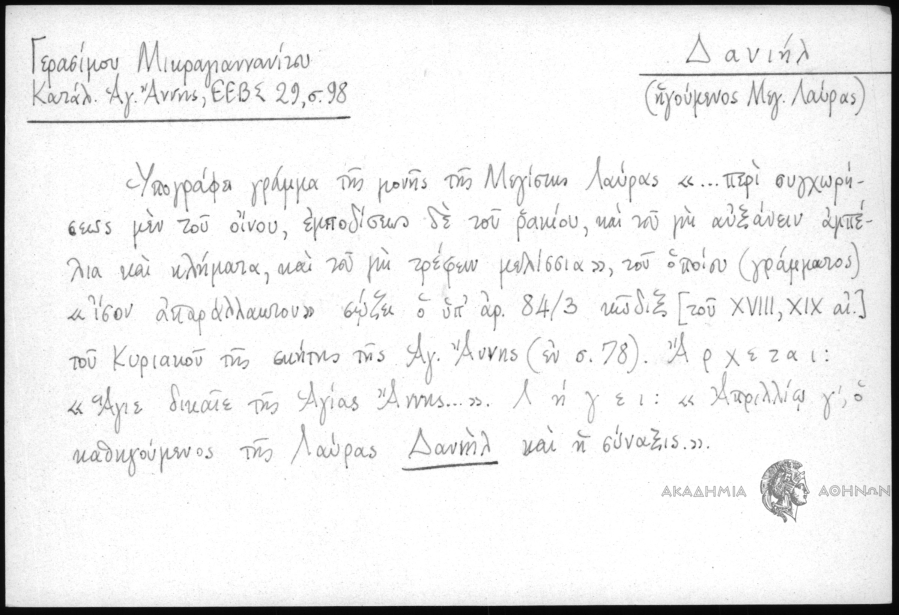 Γερασίμου Μικραγιαννανίτου
Κατάλ. Ἁγ. Ἄννης, ΕΕΒΣ 29, σ. 98
Δανιήλ
(ἡγούμενος Μεγ. Λαύρας)
Ὑπογράφει γράμμα τῆς μονῆς τῆς Μεγίστης Λαύρας «... περὶ συγχωρή-
σεως μὲν τοῦ οἴνου, ἐμποδίσεως δὲ τοῦ ῥακίου, καὶ τοῦ μὴ αὐξάνειν ἀμπέ-
λια καὶ κλήματα, καὶ τοῦ μὴ τρέφειν μελίσσια», τοῦ ὁποίου (γράμματος)
«ἴσον ἀπαράλλακτον» σῴζει ὁ ὑπ' ἀρ. 84/3 κῶδιξ [τοῦ XVIII, XIX αἰ.]
τοῦ Κυριακοῦ τῆς σκήτης τῆς Ἁγ. Ἄννης (ἐν σ. 78). Ἄρχεται:
«Ἅγιε δικαῖε τῆς Ἁγίας Ἄννης...». Λήγει: «Ἀπριλλίῳ γ', ὁ
καθηγούμενος τῆς Λαύρας Δανιὴλ καὶ ἡ σύναξις».
ΑΚΑΔΗΜΙΑ ΑΘΗΝΩΝ